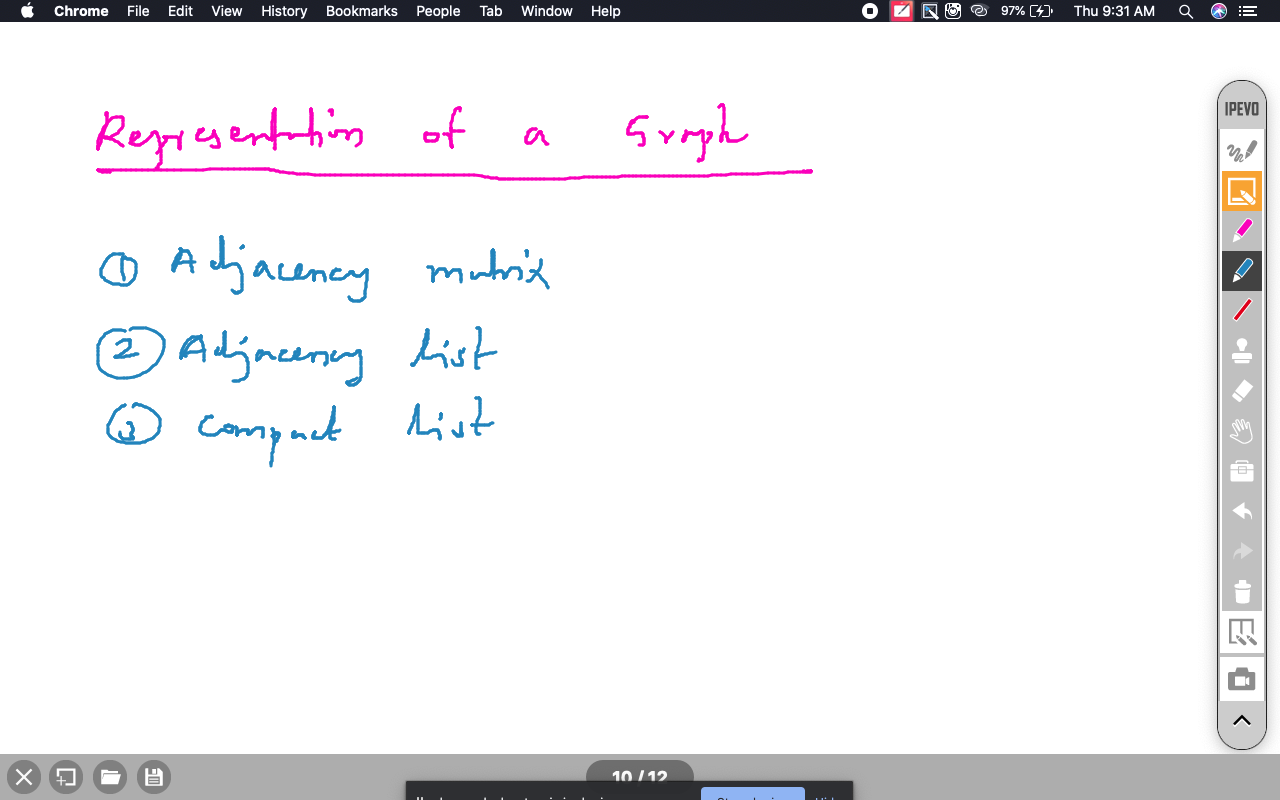 Chrome File Edit View History Bookmarks People Tab Window Help 97% Thu 9:31 AM
IPEVO
Representation of a Graph
① Adjacency matrix
② Adjacency list
③ Compact list
10 / 12